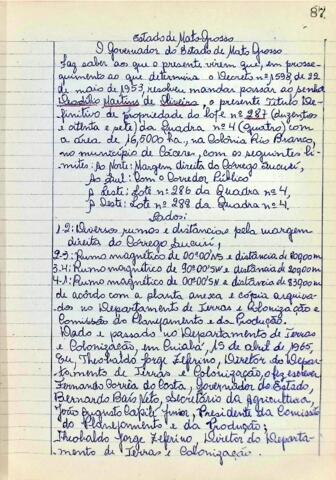 87
Estado de Mato Grosso
O Governador do Estado de Mato Grosso
faz saber ao que o presente virem que, em prosse-
guimento ao que determina o Decreto nº 1598, de 22
de maio de 1953, resolveu mandar passar ao senhor
Martins de Oliveira, o presente Título De-
finitivo de propriedade do lote nº 287 (duzentos
e oitenta e sete) da Quadra nº 4 (quatro) com
a área de 16,5000 ha., na Colônia Rio Branco,
no município de Cáceres, com os seguintes li-
mites: Ao Norte: Margem direita do Córrego Sucuri,
Ao Sul: Com o Corredor Público
A Leste: Lote nº 286 da Quadra nº 4,
A Oeste: Lote nº 288 da Quadra nº 4.
Lados:
1-2: Diversos rumos e distâncias pela margem
direita do Córrego Sucuri,
2-3: Rumo magnético de 00º00'NS e distância de
3-4: Rumo magnético de 90º00'SW e distância de
4-1: Rumo magnético de 00º00'SN e distância de
de acôrdo com a planta anexa e cópia arquiva-
da no Departamento de Terras e Colonização e
Comissão do Planejamento e da Produção.
Dado e passado no Departamento de Terras
e Colonização, em Cuiabá, 19 de abril de 1965,
Eu, Theobaldo Jorge Zeferino, Diretor do Depar-
tamento de Terras e Colonização, o fez escrever
Fernando Corrêa da Costa, Governador do Estado,
Bernardo Bais Neto, Secretário da Agricultura,
João Augusto Júnior, Presidente da Comissão
do Planejamento e da Produção;
Theobaldo Jorge Zeferino, Diretor do Departa-
mento de Terras e Colonização.